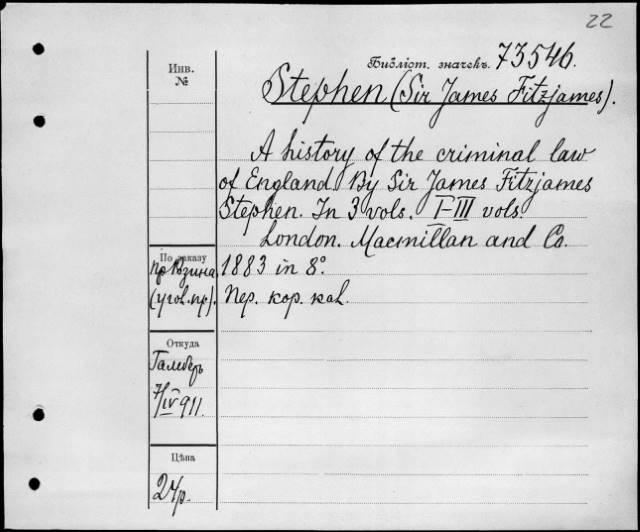 22
Библіот. значекъ. 73546.
Инв.
№
Stephen (Sir James Fitzjames).
A history of the criminal law
of England. By Sir James Fitzjames
Stephen. In 3 vols. I-III vols
London. Macmillan and Co.
По заказу
1883 in 8º.
(угол. пр). Пер. кор. каl.
Откуда
7/IV 911.
Цѣна
24р.